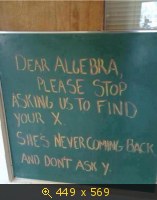 DEAR ALGEBRA,
PLEASE STOP
ASKING US TO FIND
YOUR X
SHE'S NEVER COMING BACK
AND DON'T ASK Y.
449 x 569